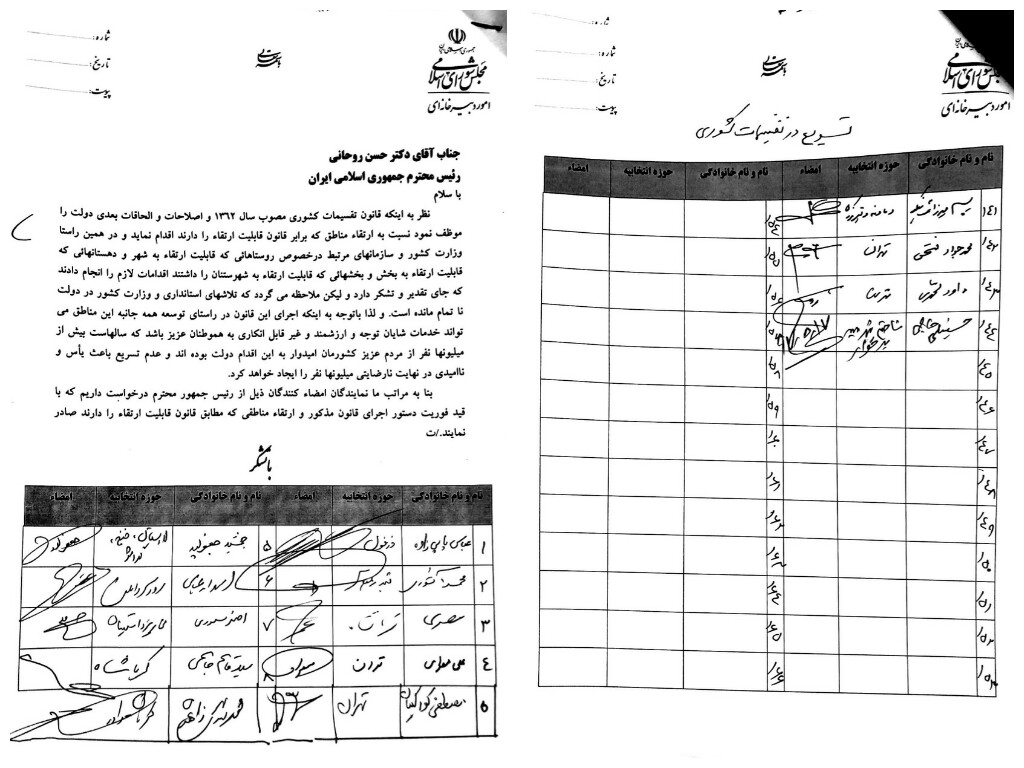 جمهوری اسلامی ایران
مجلس شورای اسلامی
امور دبیرخانه‌ای
شماره:
تاریخ:
پیوست:
جناب آقای دکتر حسن روحانی
رئیس محترم جمهوری اسلامی ایران
با سلام
نظر به اینکه قانون تقسیمات کشوری مصوب سال ۱۳۶۲ و اصلاحات و الحاقات بعدی دولت را
موظف نمود نسبت به ارتقاء مناطق که برابر قانون قابلیت ارتقاء را دارند اقدام نماید و در همین راستا
وزارت کشور و سازمانهای مرتبط درخصوص روستاهائی که قابلیت ارتقاء به شهر و دهستانهائی که
قابلیت ارتقاء به بخش و بخشهائی که قابلیت ارتقاء به شهرستتان را داشتند اقدامات لازم را انجام دادند
که جای تقدیر و تشکر دارد و لیکن ملاحظه می گردد که تلاشهای استانداری و وزارت کشور در دولت
نا تمام مانده است. و لذا باتوجه به اینکه اجرای این قانون در راستای توسعه همه جانبه این مناطق می
تواند خدمات شایان توجه و ارزشمند و غیر قابل انکاری به هموطنان عزیز باشد که سالهاست بیش از
میلیونها نفر از مردم عزیز کشورمان امیدوار به این اقدام دولت بوده اند و عدم تسریع باعث یأس و
ناامیدی در نهایت نارضایتی میلیونها نفر را ایجاد خواهد کرد.
بنا به مراتب ما نمایندگان امضاء کنندگان ذیل از رئیس جمهور محترم درخواست داریم که با
قید فوریت دستور اجرای قانون مذکور و ارتقاء مناطقی که مطابق قانون قابلیت ارتقاء را دارند صادر
نمایند./ت
باتشکر
نام و نام خانوادگی حوزه انتخابیه امضاء نام و نام خانوادگی حوزه انتخابیه امضاء
۱ عباس پاپی زاده دزفول ۵ جمشید جعفرپور لارستان، خنج،
۲ ۶
۳ ۷
۴ تهران ۸ کرمانشاه
۵ مصطفی کواکبیان تهران
جمهوری اسلامی ایران
مجلس شورای اسلامی
امور دبیرخانه‌ای
شماره:
تاریخ:
پیوست:
تسریع در تقسیمات کشوری
نام و نام خانوادگی حوزه انتخابیه امضاء نام و نام خانوادگی حوزه انتخابیه امضاء
۱۴۱ ۱۵۴
۱۴۲ محمدجواد فتحی تهران ۱۵۵
۱۴۳ داود محمدی ۱۵۶
۱۴۴ ۱۵۷
۱۴۵ ۱۵۸
۱۴۶ ۱۵۹
۱۴۷ ۱۶۰
۱۴۸ ۱۶۱
۱۴۹ ۱۶۲
۱۵۰ ۱۶۳
۱۵۱ ۱۶۴
۱۵۲ ۱۶۵
۱۵۳ ۱۶۶